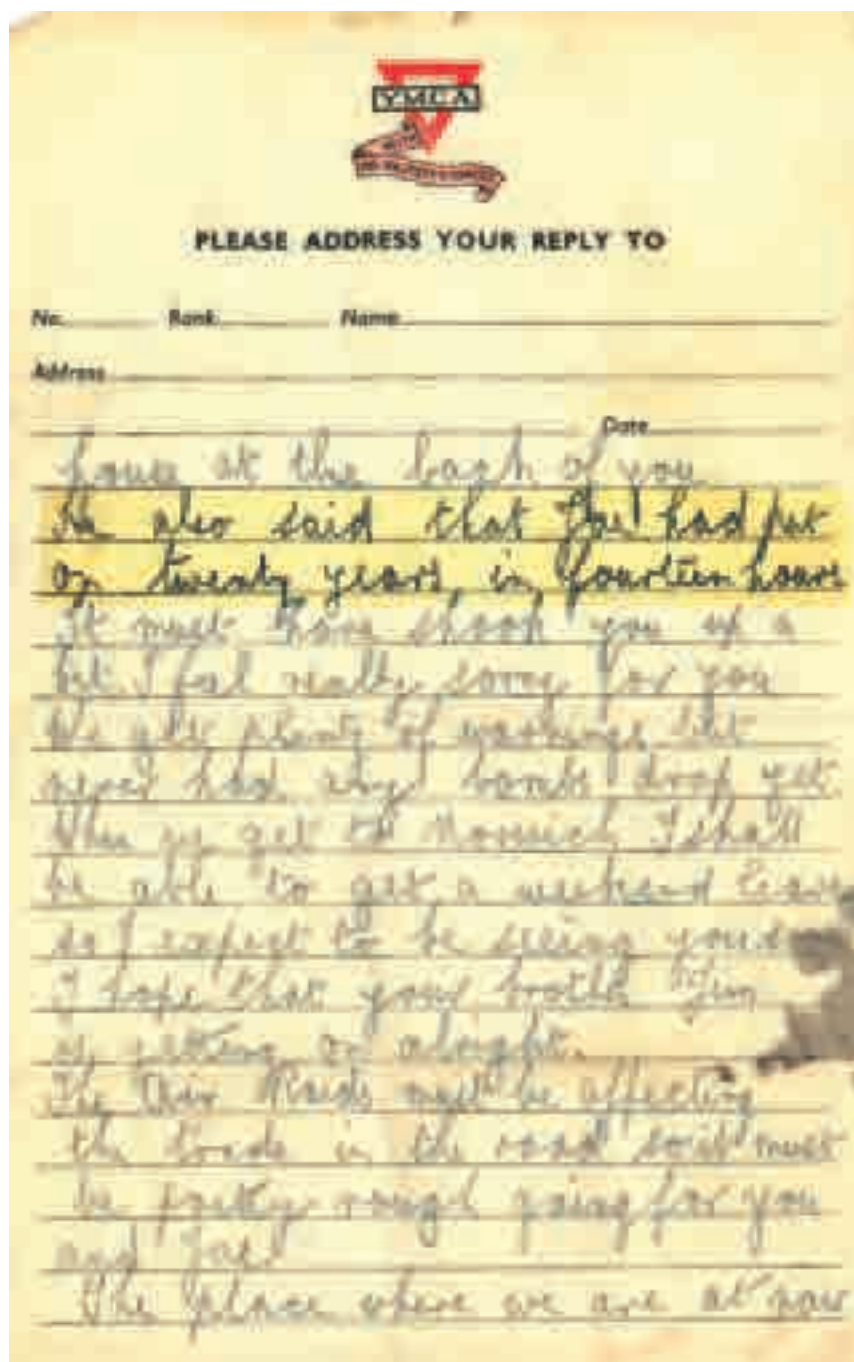 YMCA
WITH
HIS MAJESTY'S FORCES
PLEASE ADDRESS YOUR REPLY TO
No. Rank Name
Address
Date
house at the back of you
He also said that Joe had put
on twenty years, in fourteen hours
It must have shook you up a
bit I feel really sorry for you
We get plenty of warnings but
never had any bombs drop yet.
When we get to Norwich I shall
be able to get a weekend Leave
so I expect to be seeing you
I hope that your brother Jim
is getting on alright.
The Air Raids must be affecting
the trade in the road so it must
be pretty rough going for you
and Joe.
The place where we are at now